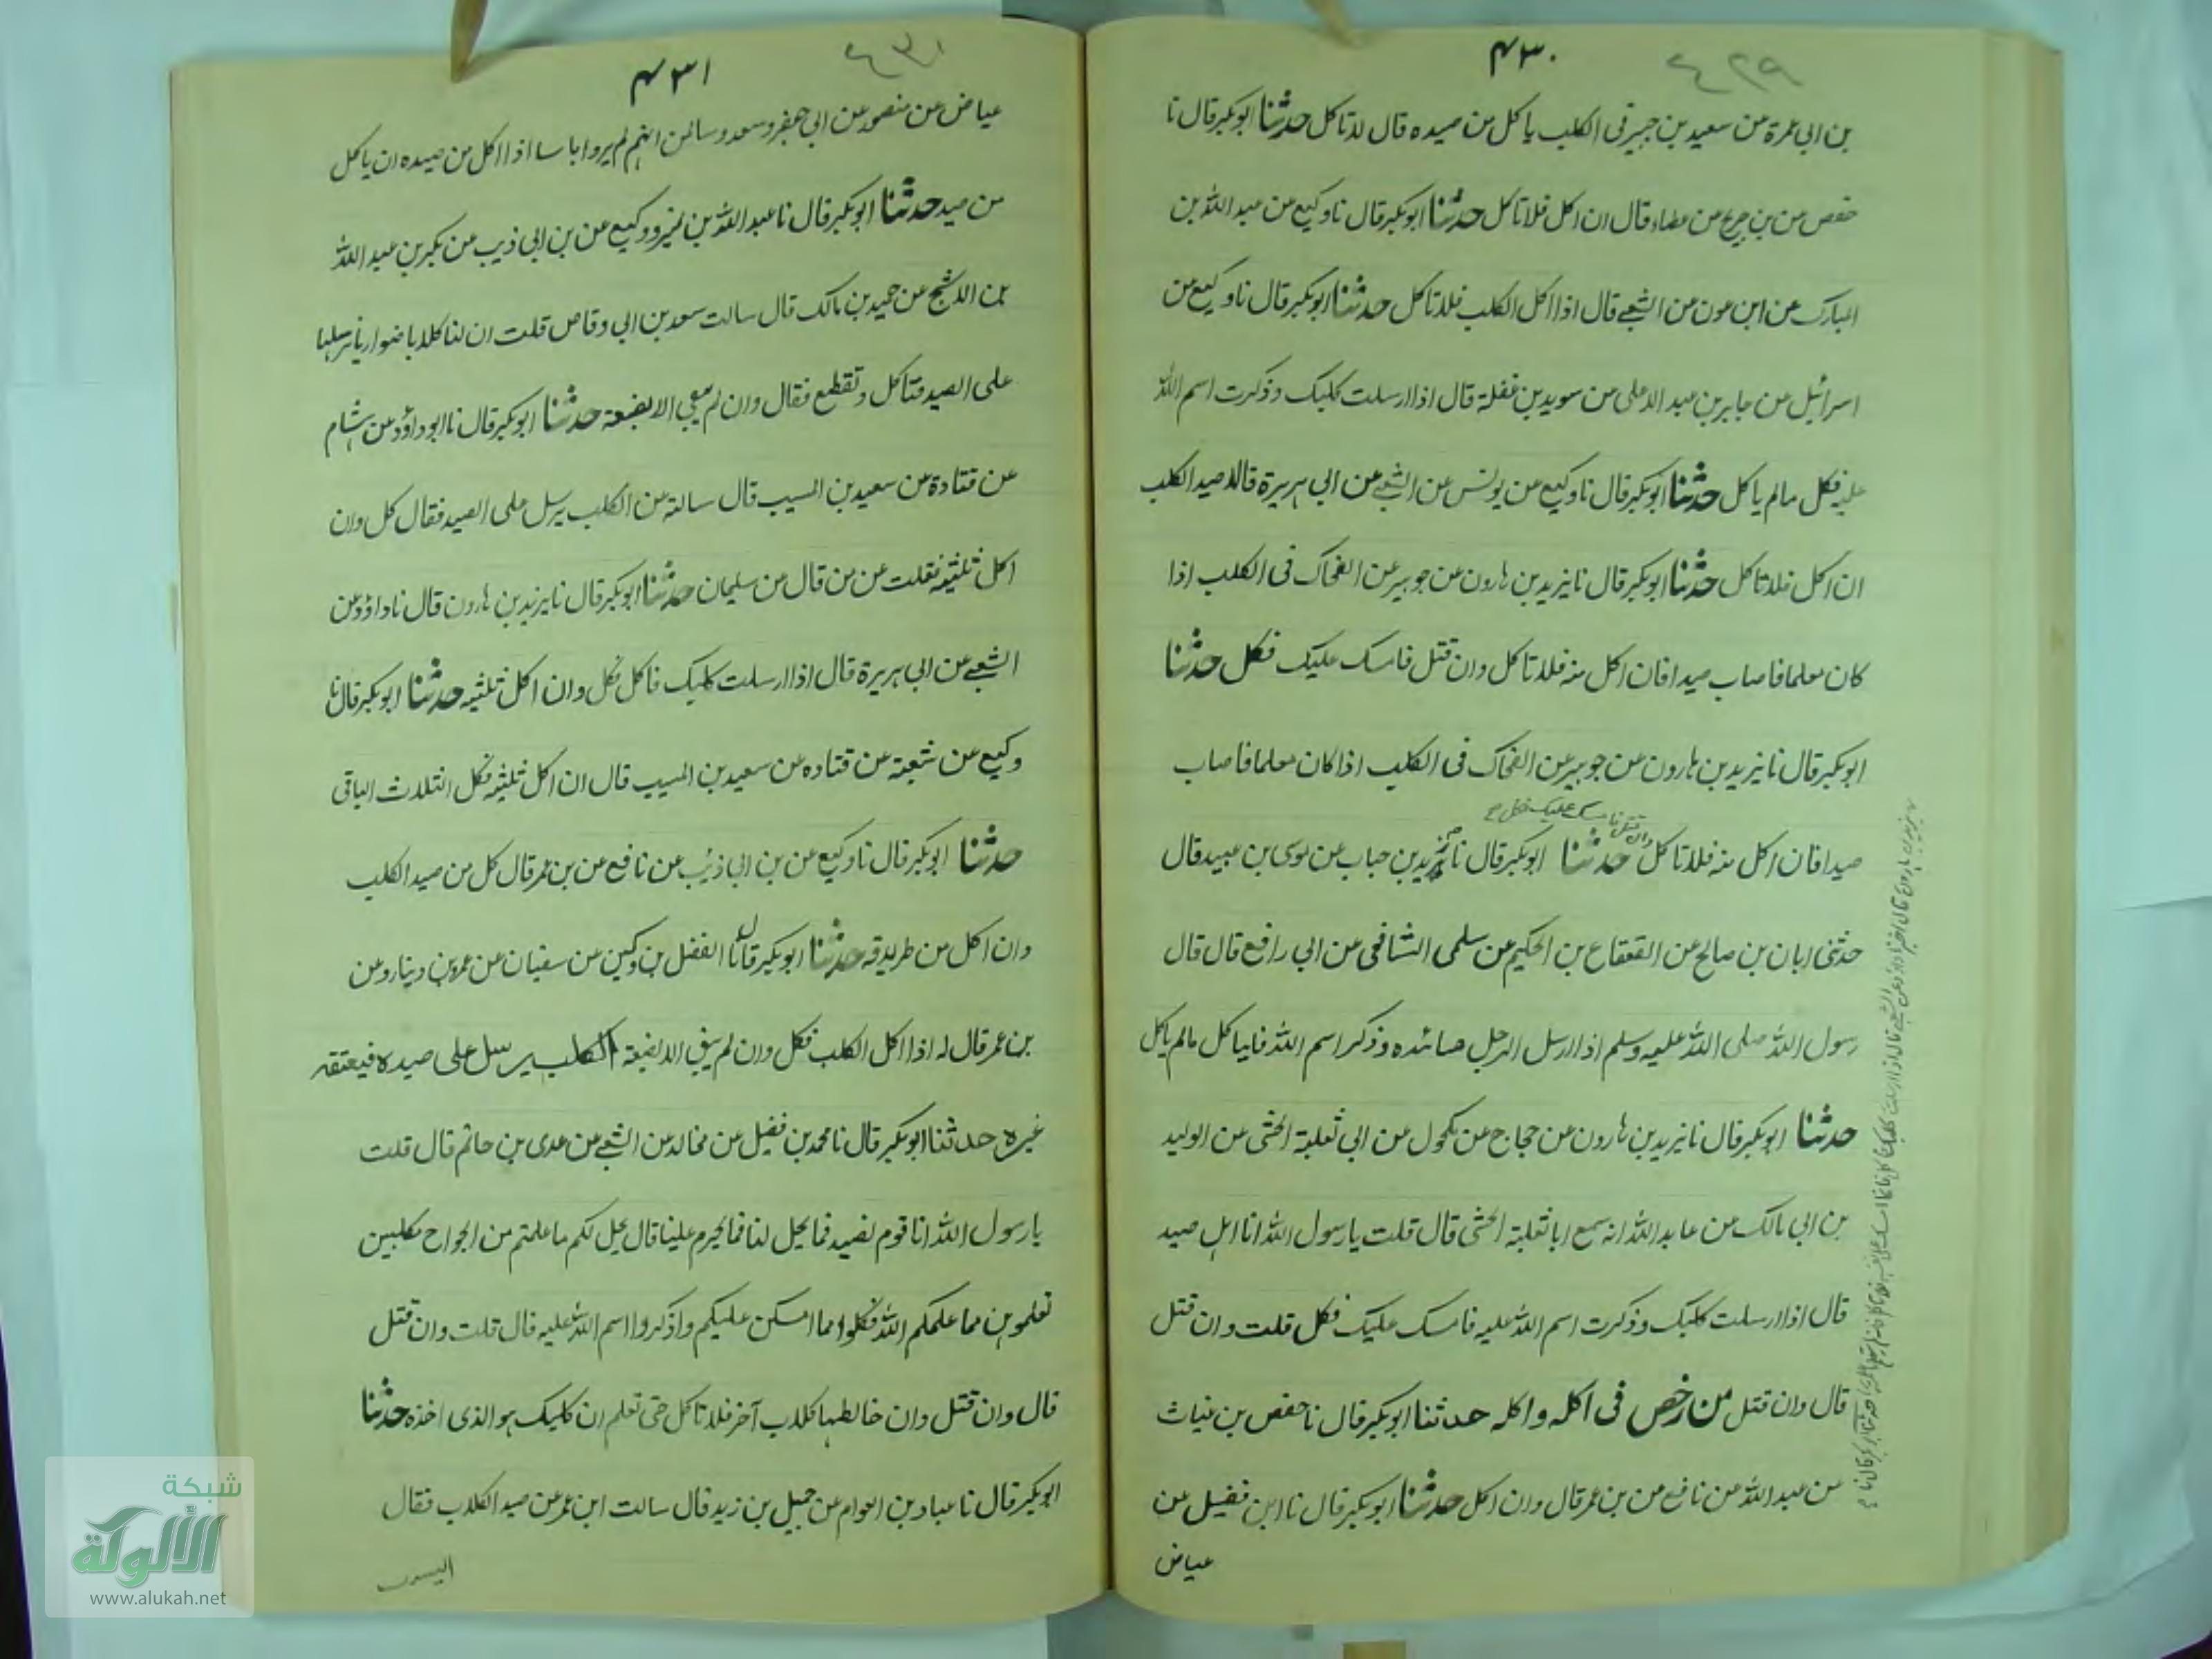 ٤٢٩
٤٣٠
بن ابى عمرة عن سعيد بن جبير فى الكلب ياكل من صيده قال لا تاكل حدثنا ابو بكر قال نا
حفص عن بن جريج عن عطاء قال ان اكل فلا تاكل حدثنا ابو بكر قال نا وكيع عن عبد الله بن
المبارك عن ابن عون عن الشعبى قال اذا اكل الكلب فلا تاكل حدثنا ابو بكر قال نا وكيع عن
اسرائيل عن جابر بن عبد الاعلى عن سويد بن غفلة قال اذا ارسلت كلبك وذكرت اسم الله
عليه فكل مالم ياكل حدثنا ابو بكر قال نا وكيع عن يونس عن الشعبى عن ابى هريرة قالا صيد الكلب
ان اكل فلا تاكل حدثنا ابو بكر قال نا يزيد بن هارون عن جويبر عن الضحاك فى الكلب اذا
كان معلما فاصاب صيدا فان اكل منه فلا تاكل وان قتل فامسك عليك فكل حدثنا
ابو بكر قال نا يزيد بن هارون عن جويبر عن الضحاك فى الكلب اذا كان معلما فاصاب
وان قتل فامسك عليك فكل
صيدا فان اكل منه فلا تاكل حدثنا ابو بكر قال نا زيد بن حباب عن موسى بن عبيد قال
حدثنى ابان بن صالح عن القعقاع بن الحكيم عن سلمى الشافعى عن ابى رافع قال قال
رسول الله صلى الله عليه وسلم اذا ارسل الرجل صائده وذكر اسم الله فلياكل مالم ياكل
حدثنا ابو بكر قال نا يزيد بن هارون عن حجاج عن مكحول عن ابى ثعلبة الخشى عن الوليد
بن ابى مالك عن عابد الله انه سمع ابا ثعلبة الخشى قال قلت يا رسول الله انا اهل صيد
قال اذا ارسلت كلبك وذكرت اسم الله عليه فامسك عليك فكل قلت وان قتل
قال وان قتل من رخص فى اكله واكله حدثنا ابو بكر قال نا حفص بن غياث
عن عبد الله عن نافع عن بن عمر قال وان اكل حدثنا ابو بكر قال نا ابن فضيل عن
عياض
٤٣١
٤٣١
عياض عن منصور عن ابى جعفر وسعد وسالمن انهم لم يروا باسا اذا اكل من صيده ان ياكل
من صيد حدثنا ابو بكر قال نا عبد الله بن نمير ووكيع عن بن ابى ذيب عن بكير بن عبد الله
بن الاشج عن حميد بن مالك قال سالت سعد بن ابى وقاص قلت ان لنا كلابا ضواريا نرسلها
على الصيد فتاكل وتقطع فقال وان لم يبقى الا بضعة حدثنا ابو بكر قال نا ابو داؤد عن هشام
عن قتادة عن سعيد بن المسيب قال سالته عن الكلب يرسل على الصيد فقال كل وان
اكل ثلثيه فقلت عن من قال عن سليمان حدثنا ابو بكر قال نا يزيد بن هارون قال نا داؤد عن
الشعبى عن ابى هريرة قال اذا ارسلت كلبك فاكل فكل وان اكل ثلثيه حدثنا ابو بكر قال نا
وكيع عن شعبة عن قتاده عن سعيد بن المسيب قال ان اكل ثلثيه فكل الثلاث الباقى
حدثنا ابو بكر قال نا وكيع عن بن ابى ذئب عن نافع عن بن عمر قال كل من صيد الكلب
وان اكل من طريدقه حدثنا ابو بكر قال نا الفضل بن دكين عن سفيان عن عمرو بن دينار وعن
بن عمر قال له اذا اكل الكلب فكل وان لم يبق الا بضعة الكلب يرسل على صيده فيعتقه
غيره حدثنا ابو بكر قال نا محمد بن فضيل عن مخالد عن الشعبى عن عدى بن حاتم قال قلت
يا رسول الله انا قوم نصيد فما يحل لنا فما يحرم علينا قال يحل لكم ما علمتم من الجواح مكلبين
تعلمونهن مما علمكم الله فكلوا مما امسكن عليكم واذكروا اسم الله عليه قال قلت وان قتل
قال وان قتل وان خالطها كلاب آخر فلا تاكل حتى تعلم ان كلبك هو الذى اخذه حدثنا
ابو بكر قال نا عباد بن العوام عن جميل بن زيد قال سالت ابن عمر عن صيد الكلاب فقال
شبكة
الألوكة
www.alukah.net